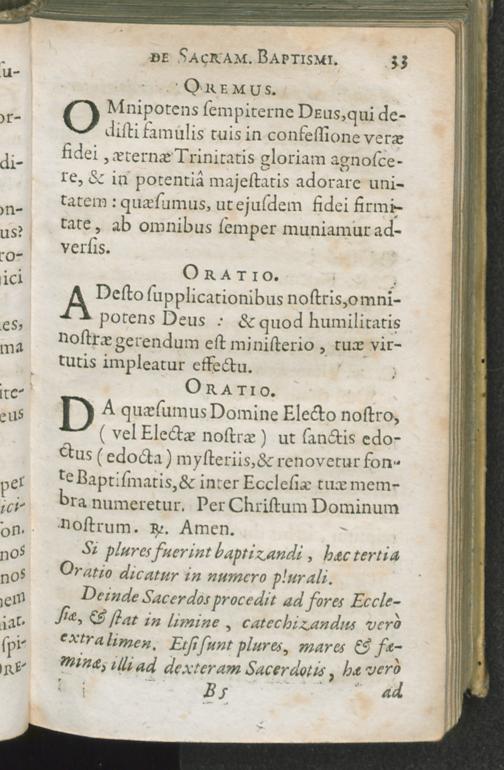 DE SACRAM. BAPTISMI. 33
OREMUS.
OMnipotens ſempiterne DEUS,qui de-
diſti famulis tuis in confeſſione veræ
fidei , æternæ Trinitatis gloriam agnoſce-
re, & in potentiâ majeſtatis adorare uni-
tatem : quæſumus, ut ejuſdem fidei firmi-
tate, ab omnibus ſemper muniamur ad-
verſis.
ORATIO.
ADeſto ſupplicationibus noſtris,omni-
potens Deus : & quod humilitatis
noſtræ gerendum eſt miniſterio , tuæ vir-
tutis impleatur effectu.
ORATIO.
DA quæſumus Domine Electo noſtro,
( vel Electæ noſtræ ) ut ſanctis edo-
ctus ( edocta ) myſteriis,& renovetur fon-
te Baptiſmatis,& inter Eccleſiæ tuæ mem-
bra numeretur. Per Chriſtum Dominum
noſtrum. ℟. Amen.
Si plures fuerint baptizandi , hæc tertia
Oratio dicatur in numero plurali.
Deinde Sacerdos procedit ad fores Eccle-
ſiæ, & ſtat in limine , catechizandus verò
extra limen. Etſi ſunt plures, mares & fœ-
minæ, illi ad dexteram Sacerdotis, hæ verò
B5 ad